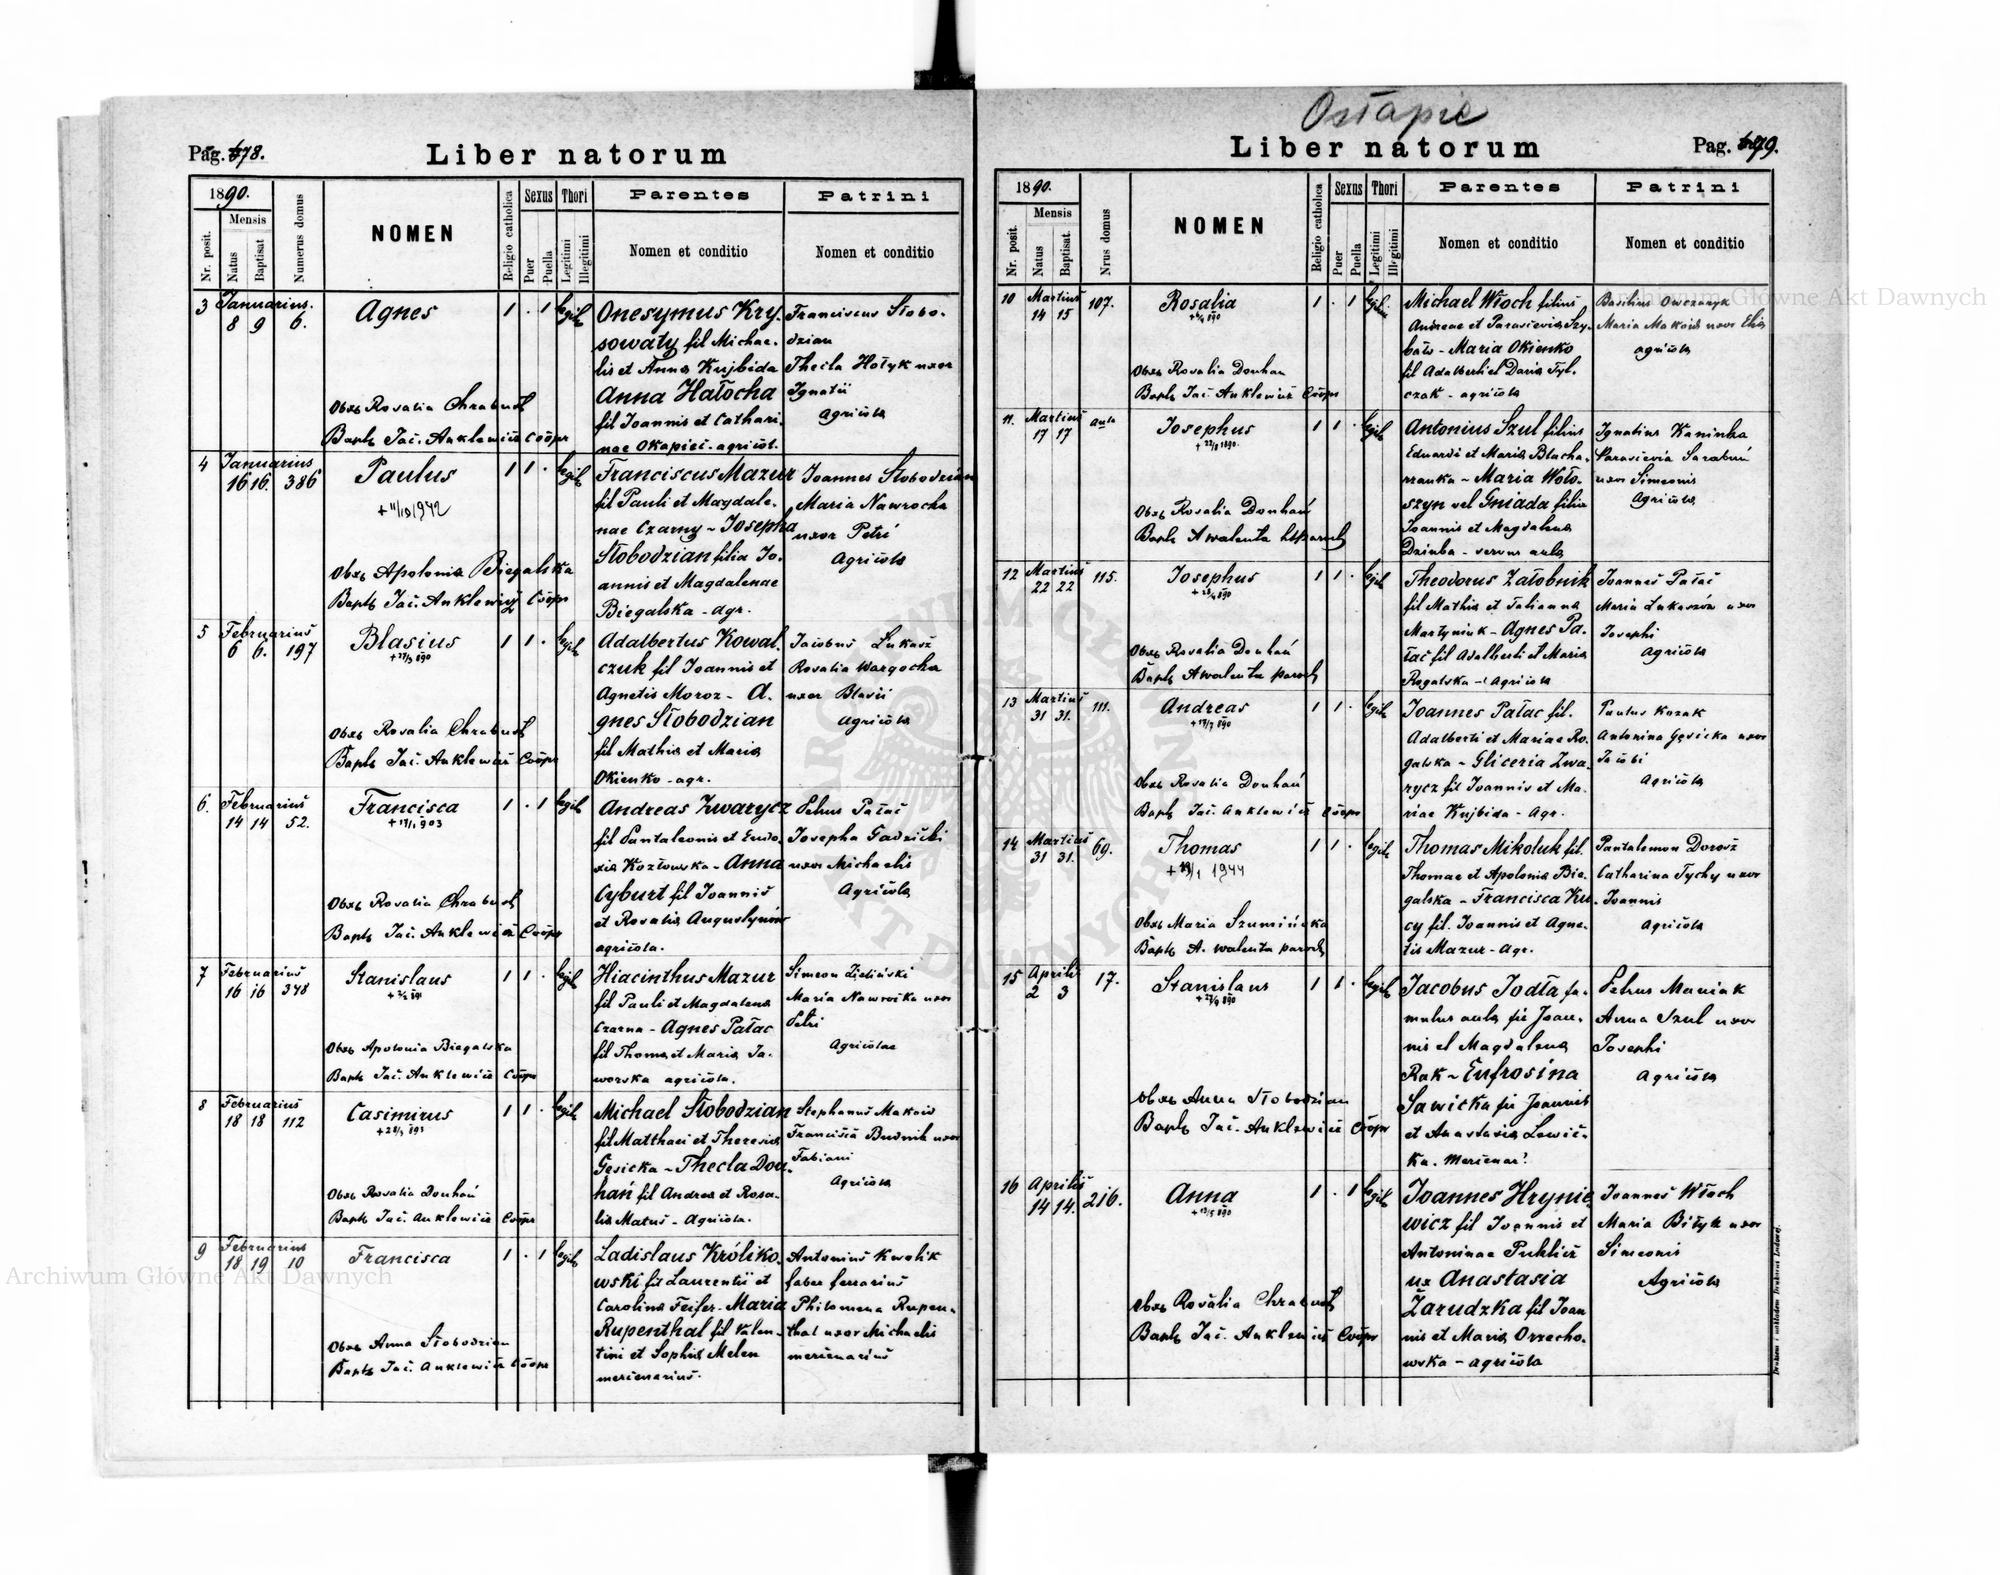 Ostapie
Pag. 678.
Liber natorum
1890.
Nr. posit.
Mensis
Natus
Baptisat
Numerus domus
NOMEN
Religio catholica
Sexus
Puer
Puella
Thori
Legitimi
Illegitimi
Parentes
Nomen et conditio
Patrini
Nomen et conditio
3 Januarius.
8 9 6.
Agnes
1 . 1 legit
Obst Rosalia Chrabust
Bapts Jac. Anklewicz Coopr
Onesymus Kry-
sowaty fil Michae-
lis et Anna Kujbida
Anna Hałocha
fil Joannis et Cathari-
nae Okapiec - agricol.
Franciscus Słobo-
dzian
Thecla Hołyk uxor
Ignatii
Agricola
4 Januarius
16 16. 386
Paulus
+ 11/10 1942
1 1 . legit
Obst Apolonia Biegalska
Bapts Jac. Anklewicz Coopr
Franciscus Mazur
fil Pauli et Magdale-
nae Czarny - Josepha
Słobodzian filia Jo-
annis et Magdalenae
Biegalska - agr.
Joannes Słobodzian
Maria Nawrocka
uxor Petri
Agricola
5 Februarius
6 6. 197
Blasius
1 1 . legit
Obst Rosalia Chrabust
Bapts Jac. Anklewicz Coopr
Adalbertus Kowal-
czuk fil Joannis et
Agnetis Moroz - A-
gnes Słobodzian
fil Mathia et Maria
Okienko - agr.
Jacobus Łukasz
Rosalia Wargocka
uxor Blasii
Agricola
6. Februarius
14 14 52.
Francisca
1 . 1 legit
Obst Rosalia Chrabust
Bapts Jac. Anklewicz Coopr
Andreas Zwarycz
fil Pantaleonis et Eudo-
xia Kozłowska - Anna
Cyburt fil Joannis
et Rosalia Augustynów
agricola.
Petrus Pałac
Josepha Gadzicki
uxor Michaelis
Agricola
7 Februarius
16 16 348
Stanislaus
1 1 . legit
Obst Apolonia Biegalska
Bapts Jac. Anklewicz Coopr
Hiacinthus Mazur
fil Pauli et Magdalena
Czarna - Agnes Pałac
fil Thoma et Maria Ja-
worska agricola.
Simeon Zieliński
Maria Nawrocka uxor
Petri
Agricolae
8 Februarius
18 18 112
Casimirus
1 1 . legit
Obst Rosalia Douhań
Bapts Jac. Anklewicz Coopr
Michael Słobodzian
fil Matthaei et Theresia
Gesicka - Thecla Dou-
hań fil Andrea et Rosa-
lia Matus - Agricola.
Stephanus Makois
Francisca Budnik uxor
Fabiani
Agricola
9 Februarius
18 19 10
Francisca
1 . 1 legit
Obst Anna Słobodzian
Bapts Jac. Anklewicz Coopr
Ladislaus Króliko-
wski fil Laurentii et
Carolina Feifer - Maria
Rupenthal fil Valen-
tini et Sophia Melen
mercenarius.
Antonius Kwolik
faber ferrarius
Philomena Rupen-
thal uxor Michaelis
mercenarius
Liber natorum
Pag. 679.
1890.
Nr. posit.
Mensis
Natus
Baptisat.
Nrus domus
NOMEN
Religio catholica
Sexus
Puer
Puella
Thori
Legitimi
Illegitimi
Parentes
Nomen et conditio
Patrini
Nomen et conditio
10 Martius
14 15 107.
Rosalia
1 . 1
Obst Rosalia Douhań
Bapts Jac. Anklewicz Coopr
Michael Włoch filius
Andreae et Parasievia Szy-
bato - Maria Okienko
fil Adalberti et Daria Tyl-
czak - agricola
Basilius Owczaryk
Maria Makois uxor Elia
agricola
11. Martius
17 17 aula
Josephus
1 1 . legit
Obst Rosalia Douhań
Bapts A Walenta
Antonius Szul filius
Eduardi et Maria Blacha-
rzanka - Maria Woło-
szyn vel Gniada filia
Joannis et Magdalena
Dziuba - servus aula
Ignatius Kaninka
Parasievia Saraburá
uxor Simeonis
Agricola
12 Martius
22 22 115.
Josephus
1 1 . legit
Obst Rosalia Douhań
Bapts A Walenta paroch
Theodorus Załobnik
fil Mathia et Tatianna
Martyniuk - Agnes Pa-
łac fil Adalberti et Maria
Rogalska - Agricola
Joannes Pałac
Maria Lukaszów uxor
Josephi
agricola
13 Martius
31 31. 111.
Andreas
1 1 . legit
Obst Rosalia Douhań
Bapts Jac. Anklewicz Coopr
Joannes Pałac fil.
Adalberti et Mariae Ro-
galska - Gliceria Zwa-
rycz fil Joannis et Ma-
riae Kujbida - Agr.
Paulus Kozak
Antonina Gęsicka uxor
Jacobi
Agricola
14 Martius
31 31. 69.
Thomas
1944
1 1 . legit
Obst Maria Szumińska
Bapts A. Walenta paroch
Thomas Mikoluk fil.
Thomae et Apolonia Bie-
galska - Francisca Ku-
cy fil. Joannis et Agne-
tis Mazur - Agr.
Pantalemon Dorosz
Catharina Tychy uxor
Joannis
Agricola
15 Aprilis
2 3 17.
Stanislaus
1 1 . legit
Obst Anna Słobodzian
Bapts Jac. Anklewicz Coopr
Jacobus Jodła fa-
mulus aula fil Joan-
nis et Magdalena
Rak - Eufrosina
Sawicka fil Joannis
et Anastasia Lewic-
ka. Mercenar.
Petrus Maniak
Anna Szul uxor
Josephi
Agricola
16 Aprilis
14 14. 216.
Anna
1 . 1 legit
Obst Rosalia Chrabust
Bapts Jac. Anklewicz Coopr
Joannes Hrynie-
wicz fil Joannis et
Antoninae Puklicz
ux Anastasia
Żarudzka fil Joan
nis et Maria Orzecho-
wska - agricola
Joannes Włoch
Maria Biłyk uxor
Simeonis
Agricola
Archiwum Główne Akt Dawnych
Archiwum Główne Akt Dawnych
ARCHIWUM GŁÓWNE AKT DAWNYCH